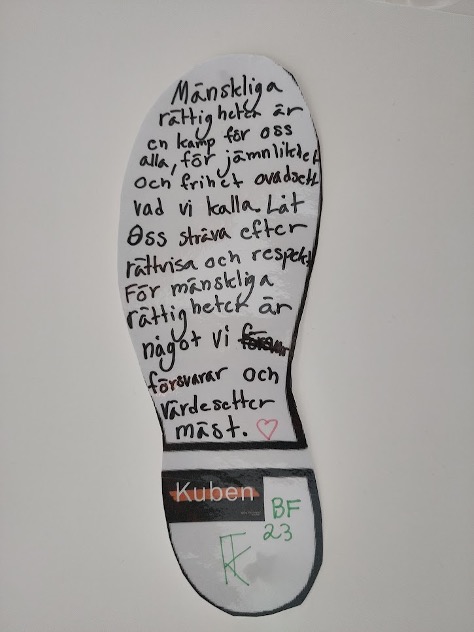 Mänskliga
rättigheter är
en kamp för oss
alla, för jämnlikdet
och frihet ovadsett
vad vi kalla. Låt
Oss sträva efter
rättvisa och respekt
För mänskliga
rättigheter är
något vi
försvarar och
värdesetter
mäst.
Kuben
BF
23